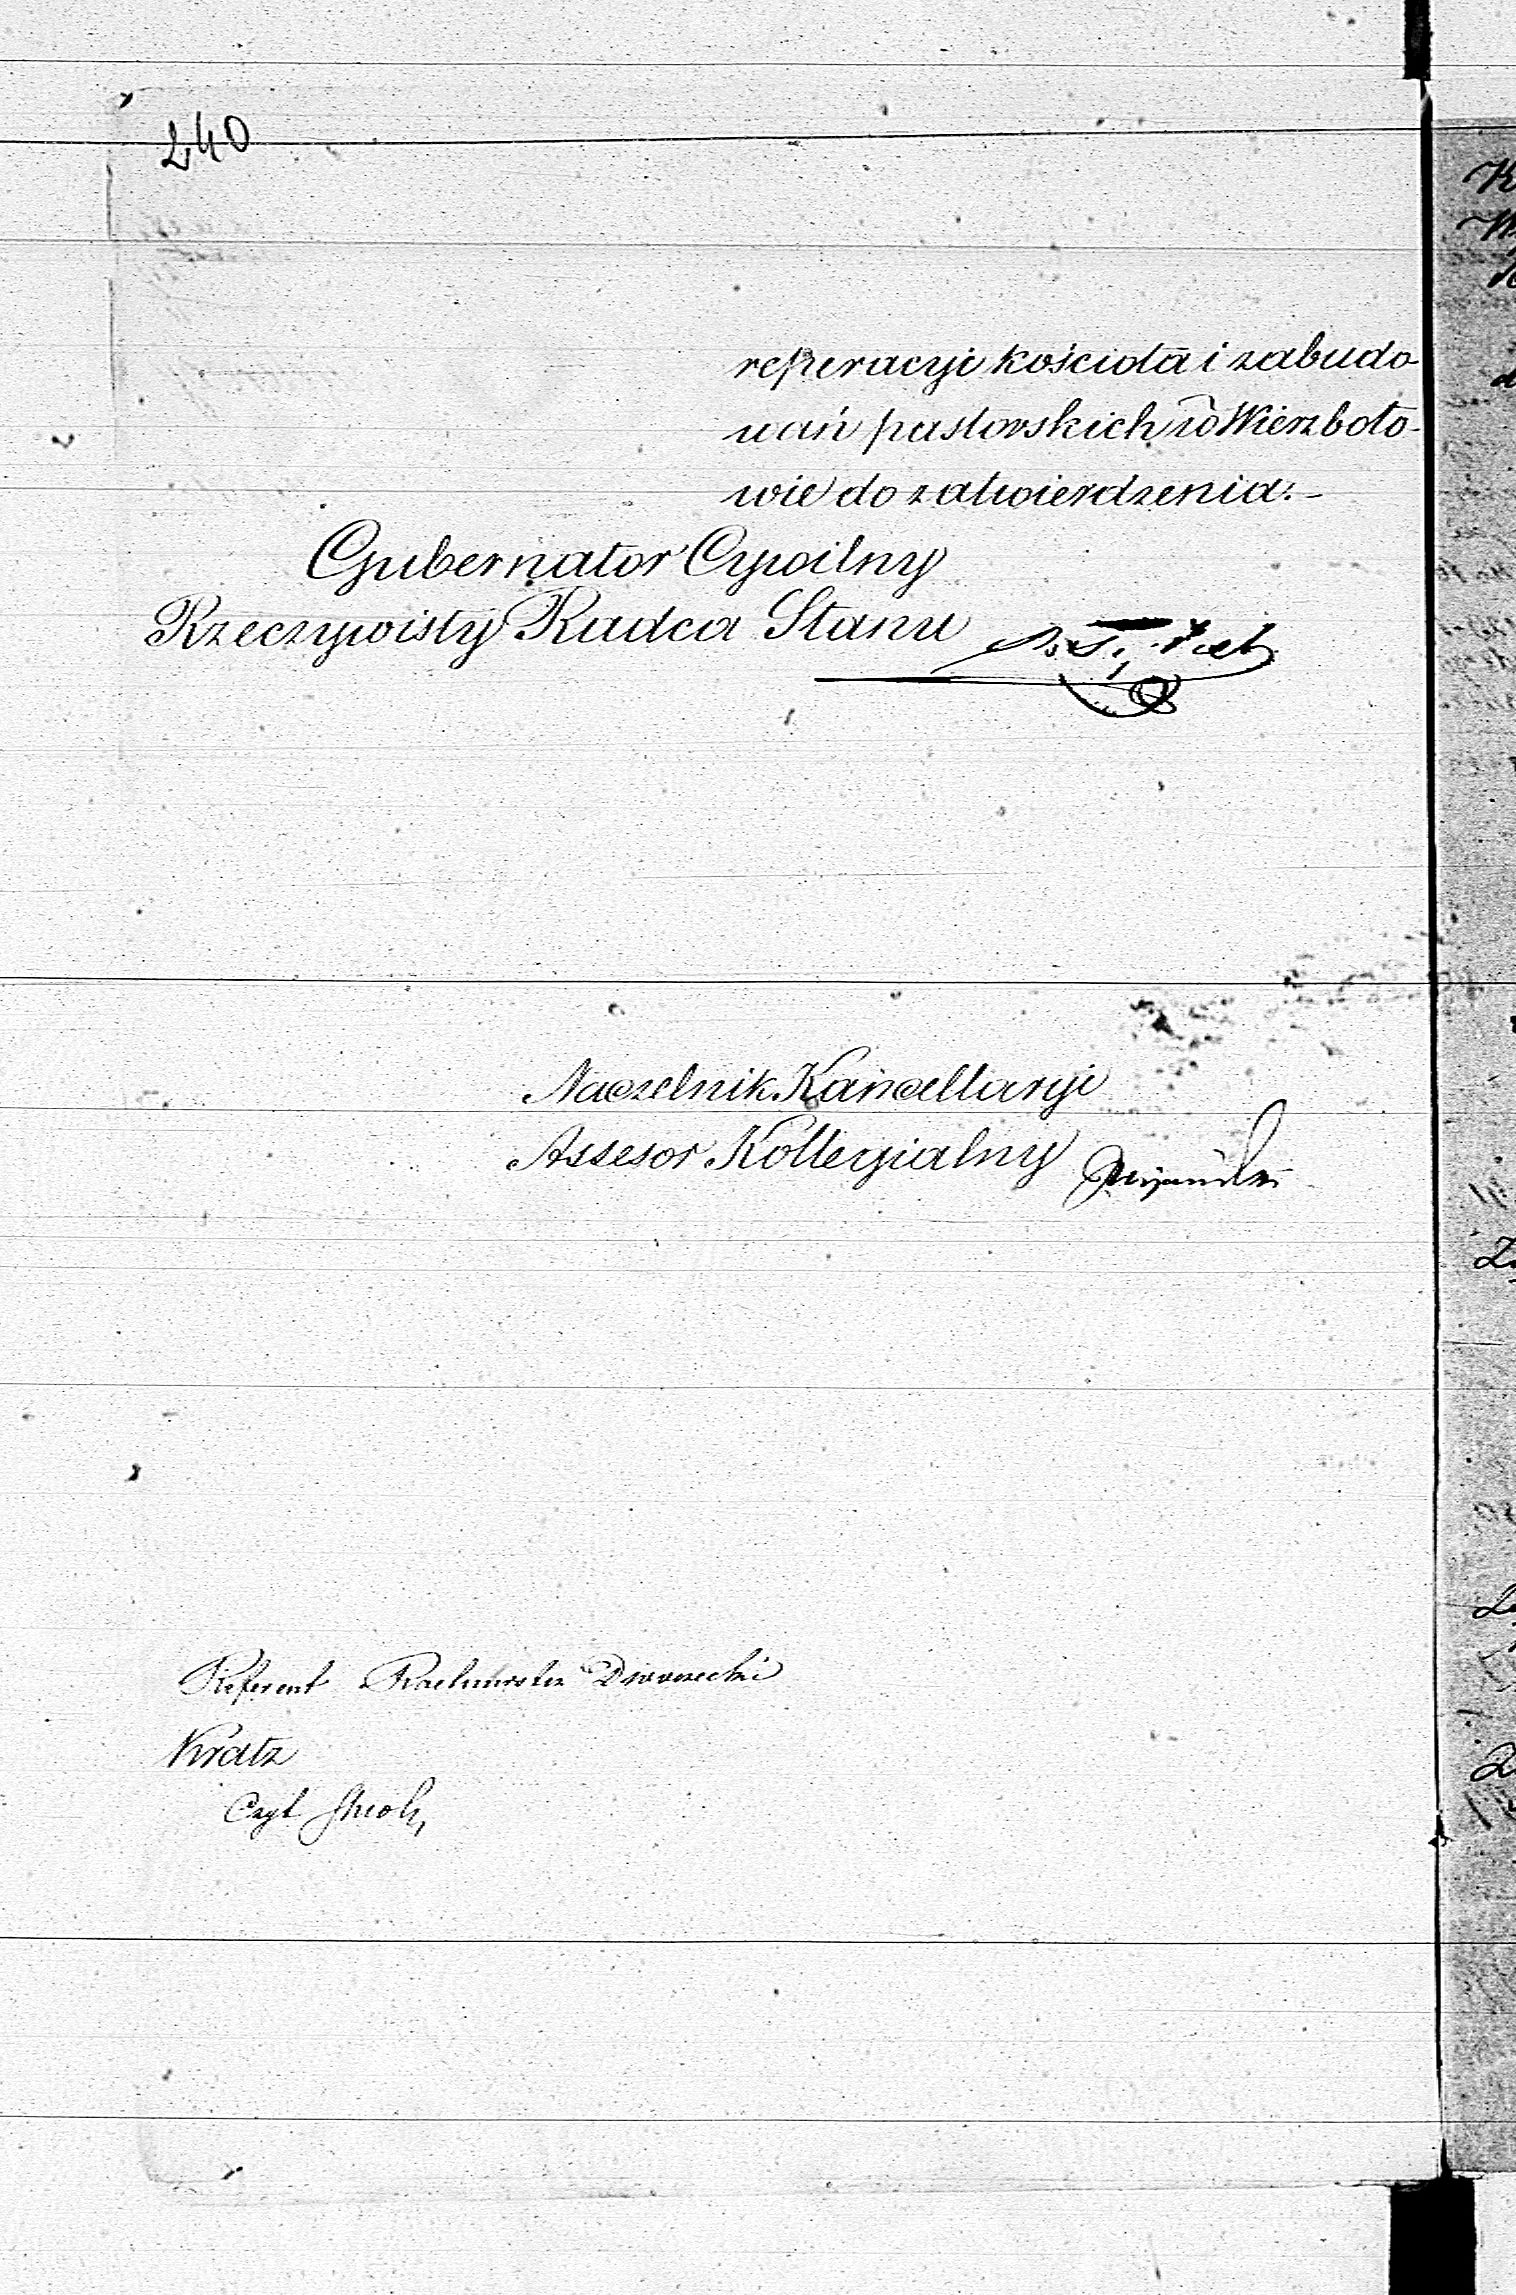 240
reperacyi kościoła i zabudo
wań pastorskich w Wierzboło-
wie do zatwierdzenia.-
Gubernator Cywilny
Rzeczywisty Radca Stanu
Naczelnik Kancellaryi
Assesor Kollegialny
Referent Rachmistrz Dworzecki
Kratz
Czyt